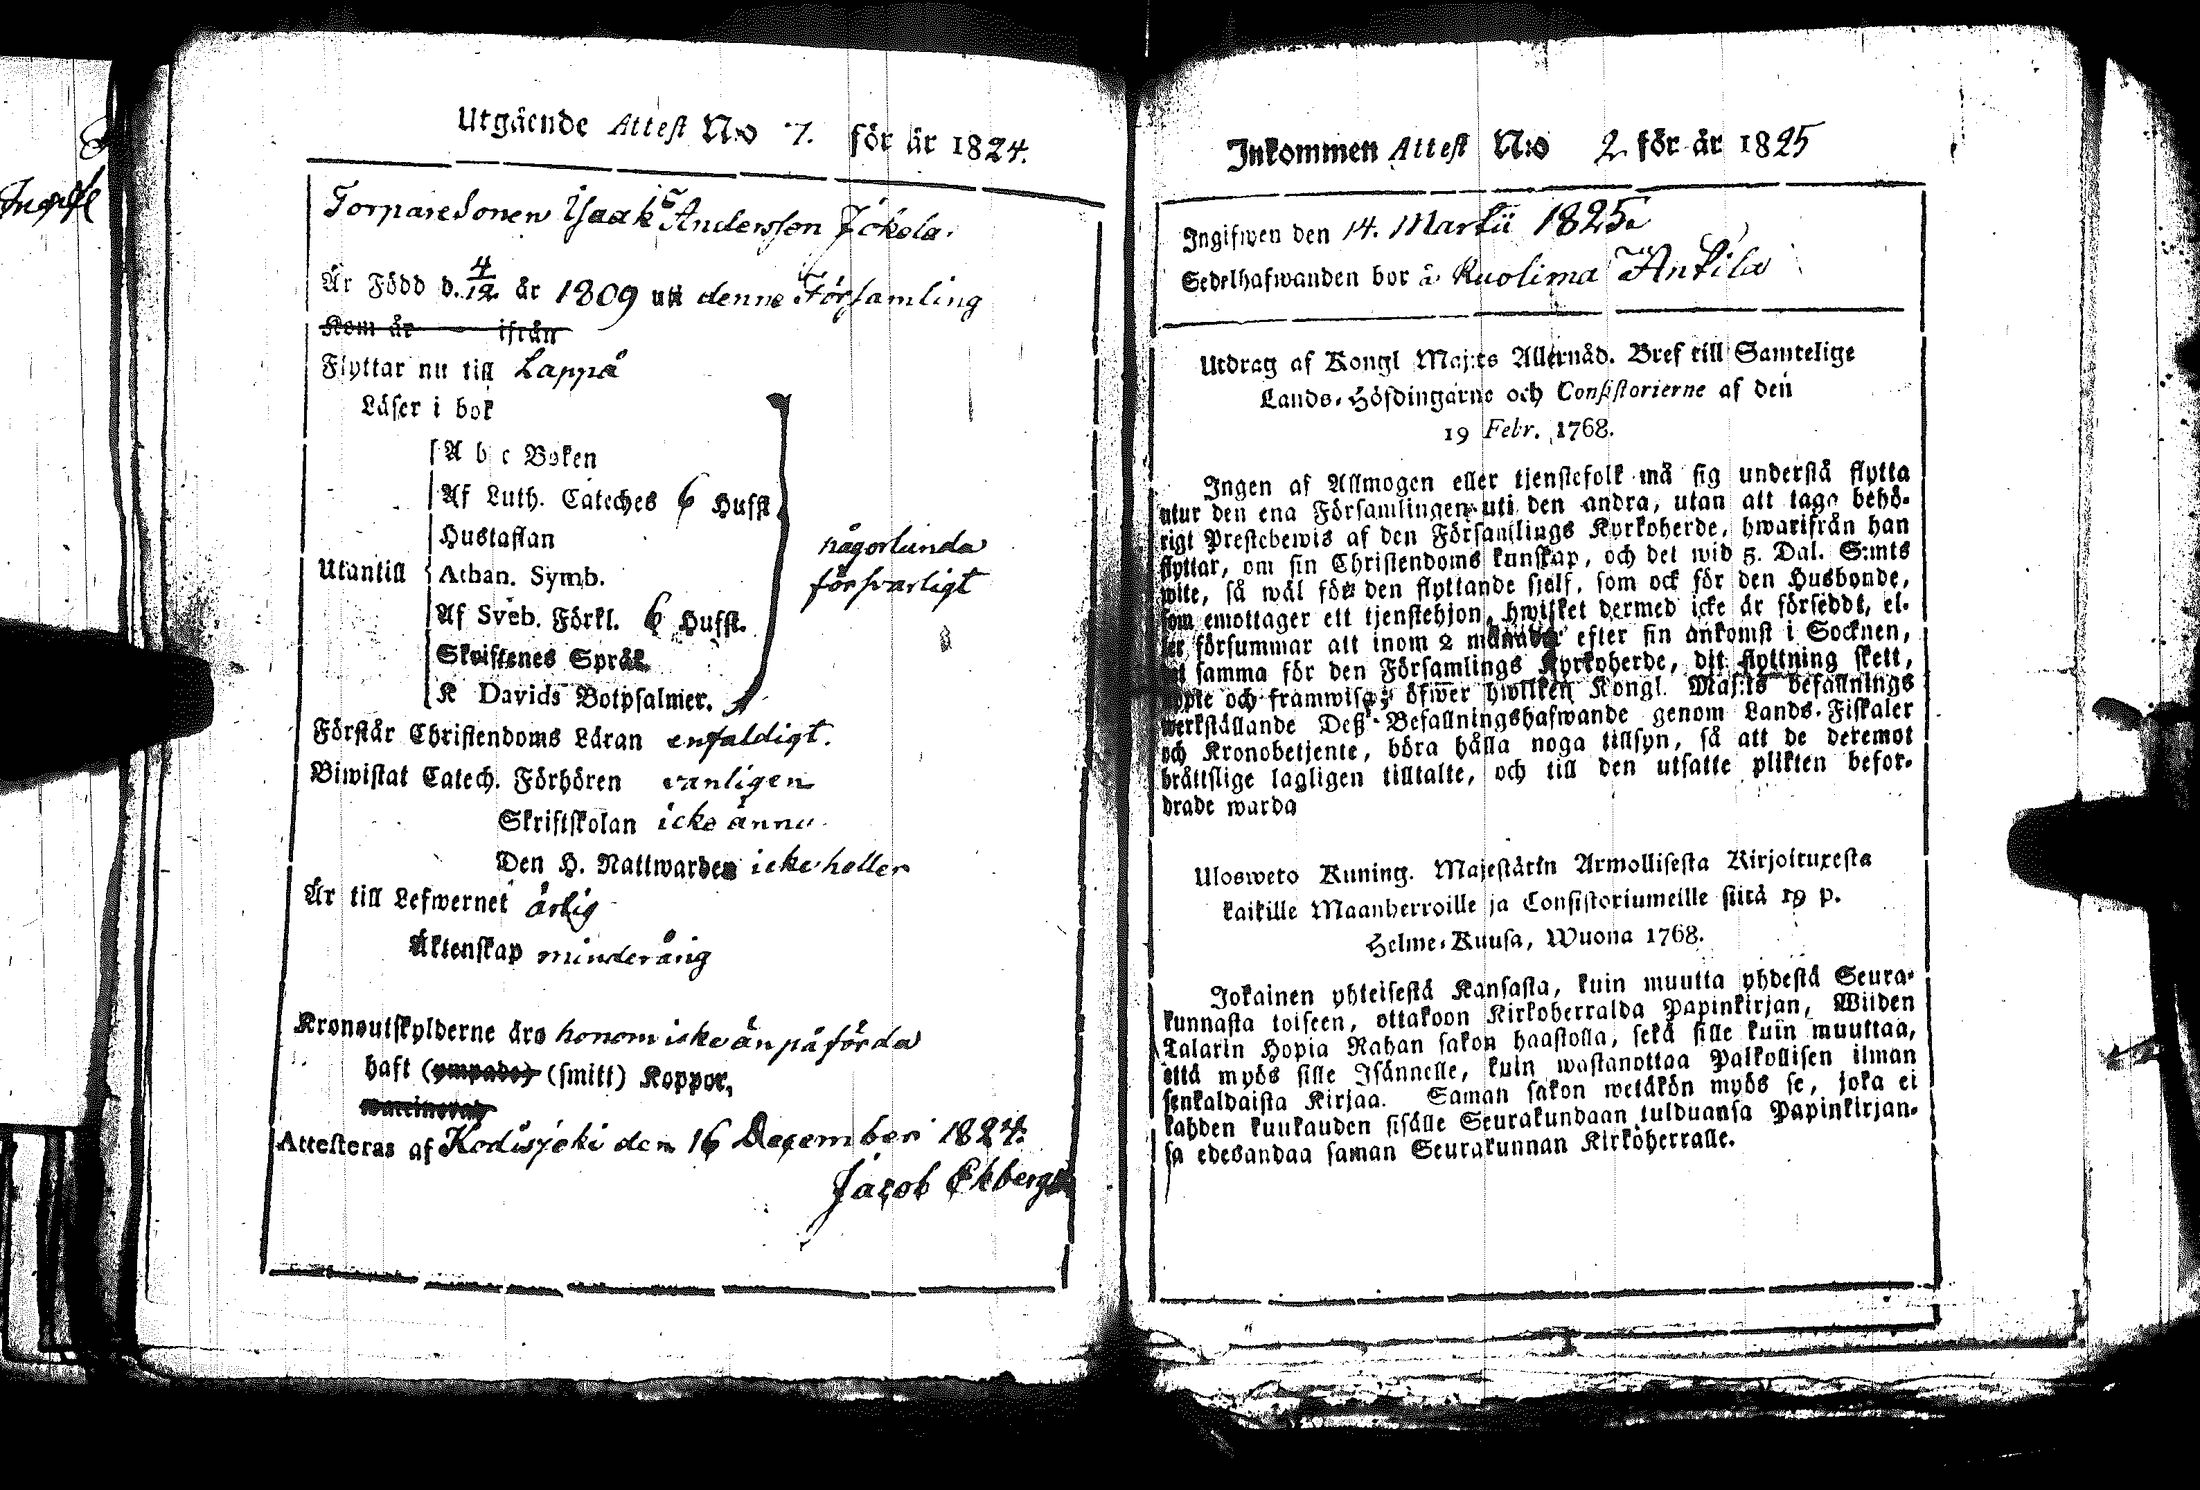 Utgående Attest N:o 7. för år 1824.
Torparesonen Isaak Andersson Jokela.
Är Född d. 4/12 år 1809 uti denne Församling
Kom år ifrån
Flyttar nu till Lappå
Läser i bok
A b c Boken
Af Luth. Cateches 6 Hufst.
Hustaflan
Utantill
Athan. Symb.
Af Sveb. Förkl. 6 Hufst.
Skriftenes Språk
K Davids Botpsalmer.
någorlunda
försvarligt
Förstår Christendoms Läran enfaldigt.
Biwistat Catech. Förhören vanligen
Skriftskolan icke ännu
Den H. Nattwarden icke heller
Är till Lefwernet ärlig
Äktenskap minderårig
Kronoutskylderne äro honom icke än påförda
haft (ympade) (smitt) Koppor,
waccinerad
Attesteras af Kodisjoki den 16 December 1824.
Jacob Ekberg
Inkommen Attest N:o 2 för år 1825
Ingifwen den 14. Martii 1825.
Sedelhafwanden bor å Kuolima Antila
Utdrag af Kongl Maj:ts Allernåd. Bref till Samtelige
Lands-Höfdingarne och Consistorierne af den
19 Febr. 1768.
Ingen af Allmogen eller tjenstefolk må sig understå flytta
utur den ena Församlingen uti den andra, utan att taga behö-
rigt Prestebewis af den Församlings Kyrkoherde, hwarifrån han
flyttar, om sin Christendoms kunskap, och det wid 5. Dal. S:mts
wite, så wäl för den flyttande sjelf, som ock för den Husbonde,
som emottager ett tjenstehjon, hwilket dermed icke är försedt, el-
ler försummar att inom 2 månader efter sin ankomst i Socknen,
samma för den Församlings Kyrkoherde, dit flyttning skett,
uppte och framwisa; öfwer hwilken Kongl. Maj:ts befallnings
werkställande Deß Befallningshafwande genom Lands-Fiskaler
och Kronobetjente, böra hålla noga tillsyn, så att de deremot
bråttslige lagligen tilltalte, och till den utsatte plikten befor-
drade warda
Ulosweto Kuning. Majestätin Armollisesta Kirjoituxesta
kaikille Maanherroille ja Consistoriumeille siitä 19 p.
Helme-Kuusa, Wuona 1768.
Jokainen yhteisestä Kansasta, kuin muutta yhdestä Seura-
kunnasta toiseen, ottakoon Kirkoherralda Papinkirjan, Wiiden
Talarin Hopia Rahan sakon haastolla, sekä sille kuin muuttaa,
että myös sille Isännelle, kuin wastanottaa Palkollisen ilman
senkaldaista Kirjaa. Saman sakon wetäkön myös se, joka ei
kahden kuukauden sisälle Seurakundaan tulduansa Papinkirjan-
sa edesandaa saman Seurakunnan Kirköherralle.